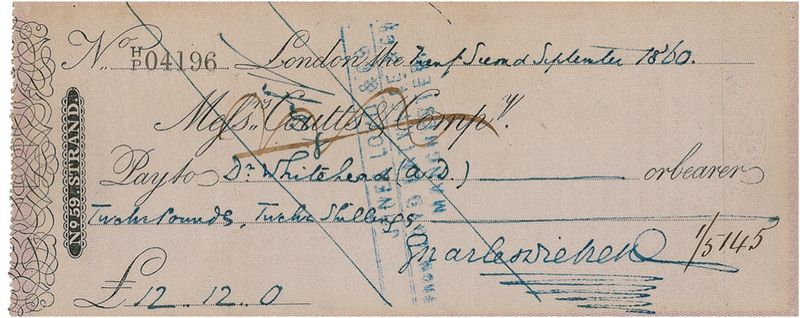 No. H/P 04196 London the Twenty Second September 1860.
Messrs. Coutts & Compy.
Pay to Dr. Whitehead (A.D.) or bearer
Twelve Pounds, Twelve Shillings
Charles Dickens 1/5145
£12..12..0
No. 59. STRAND.
MANCHESTER